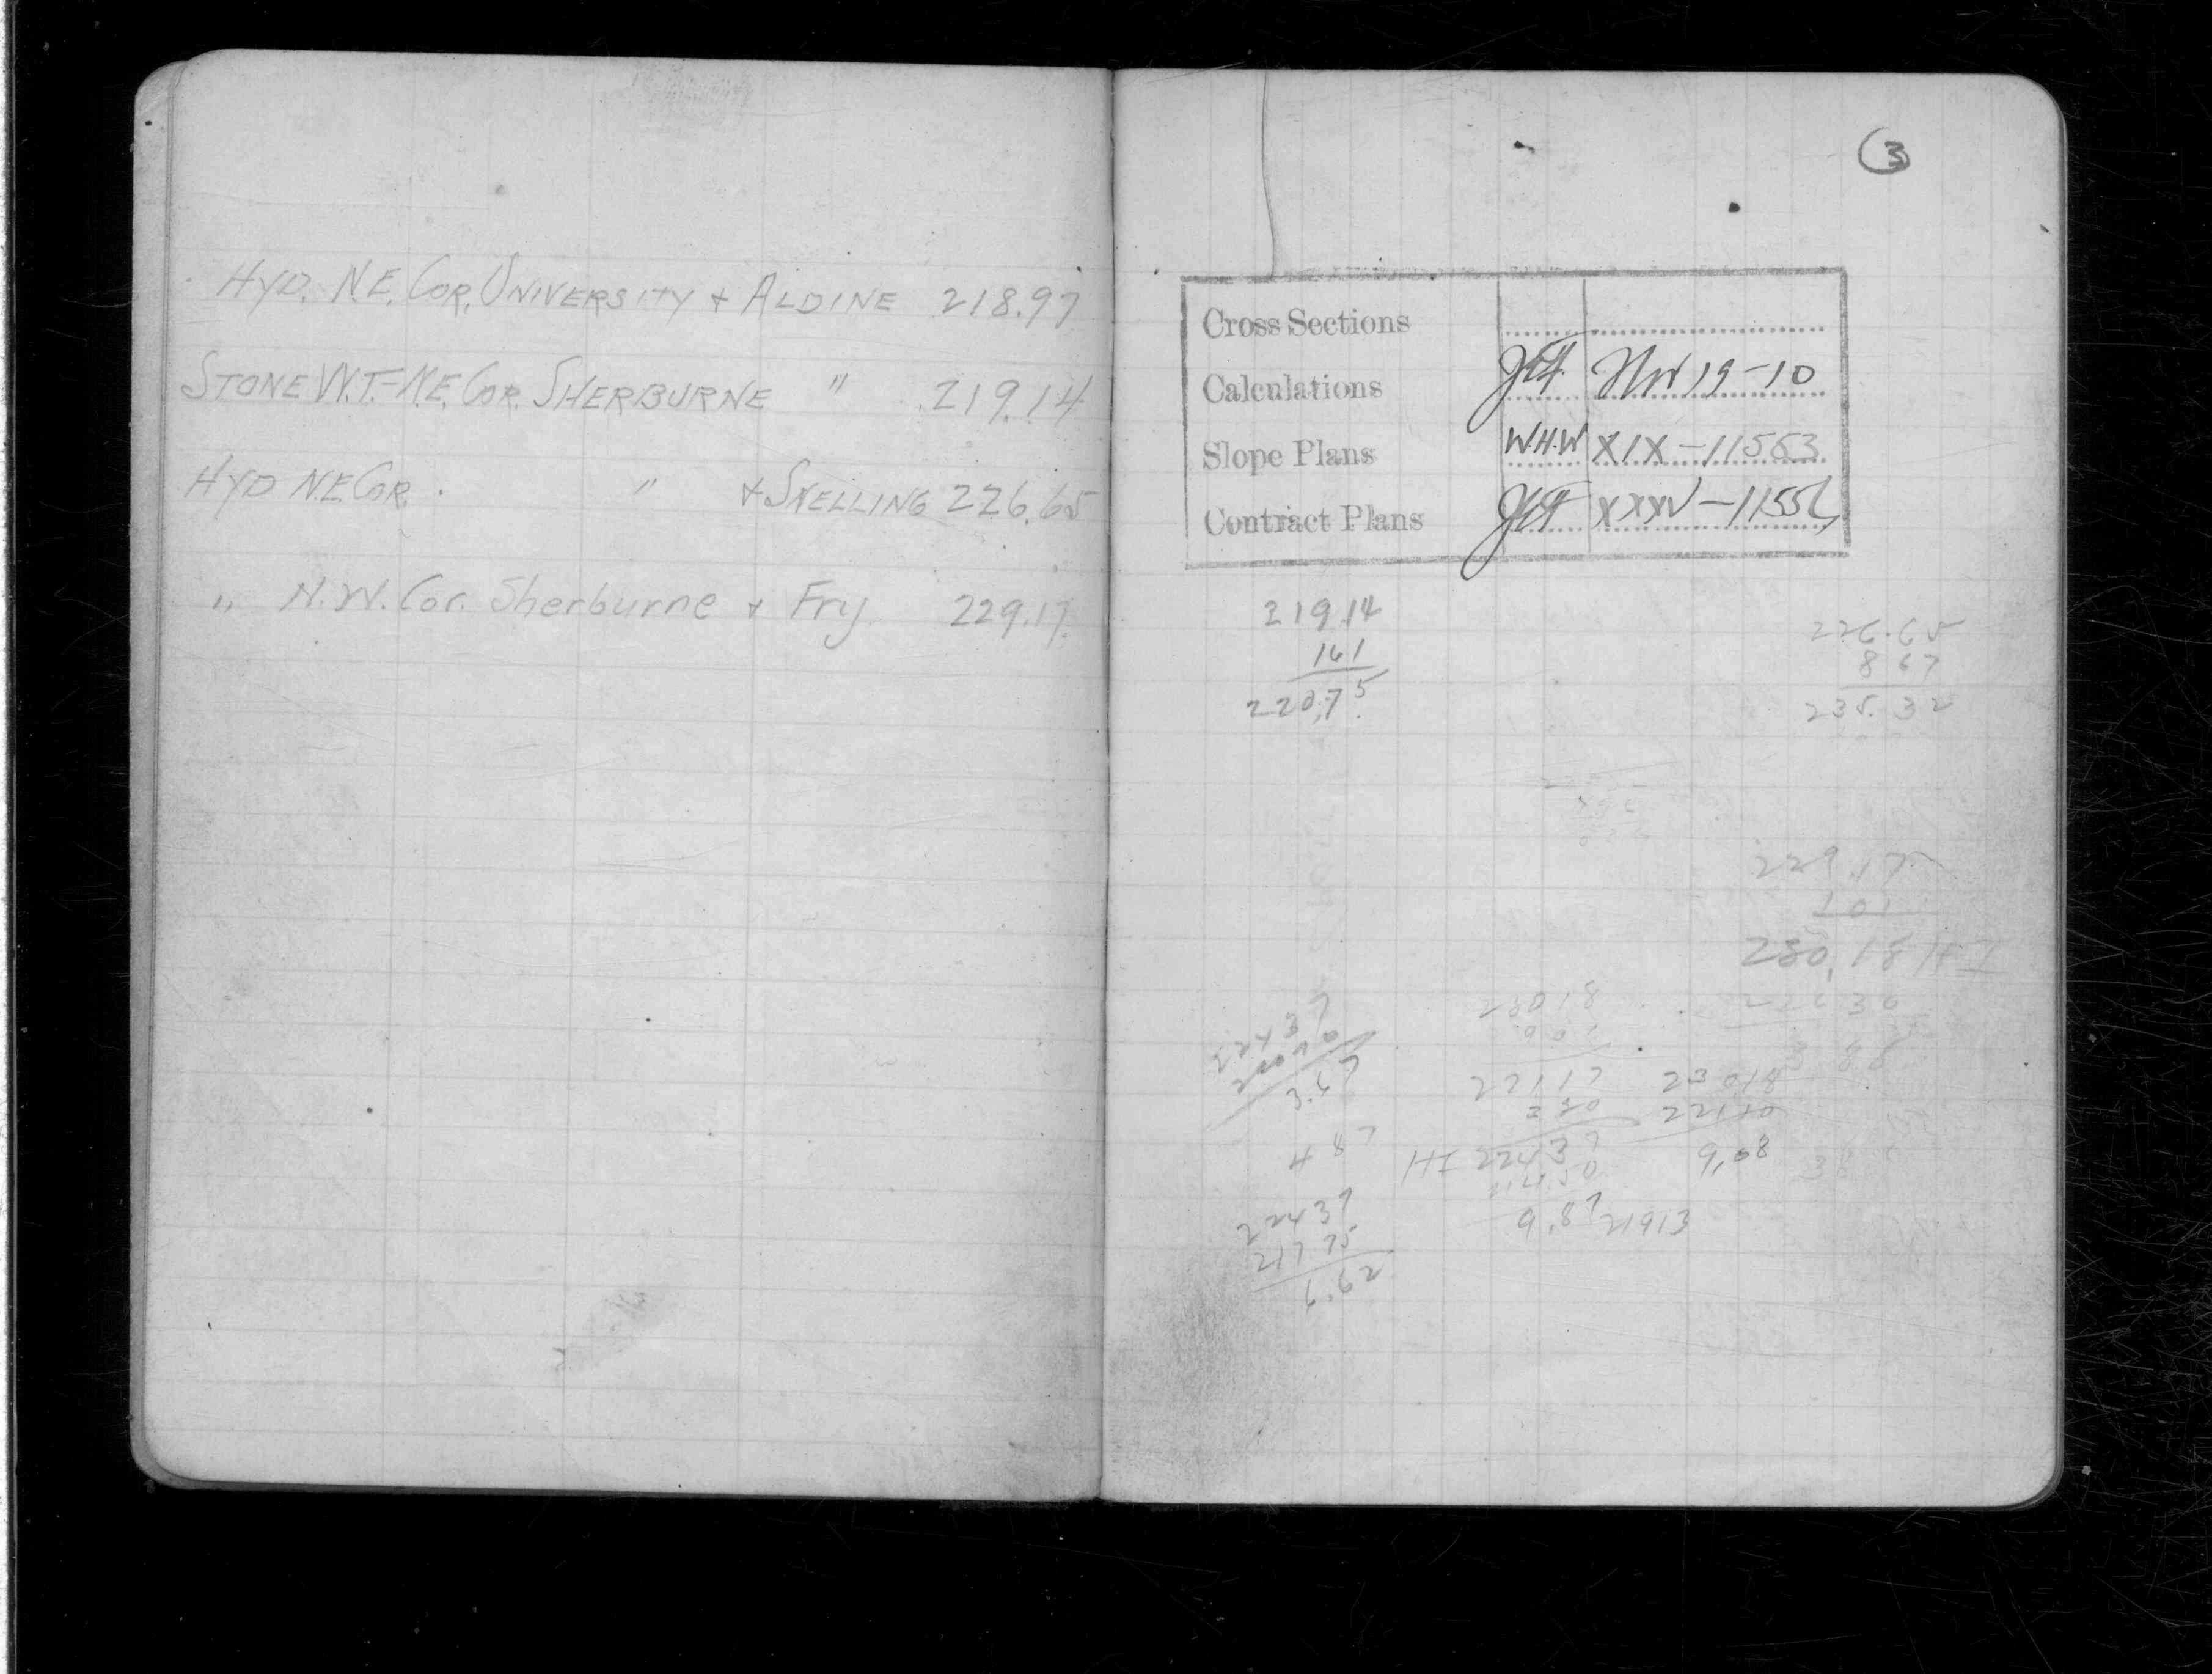 HYD. N.E. COR. UNIVERSITY + ALDINE 218.97
STONE W.T.-N.E. COR. SHERBURNE " 219.14
HYD N.E COR. " + SNELLING 226.65
" N.W. Cor. Sherburne + Fry 229.17
3
Cross Sections
Calculations Nov 19-10
Slope Plans W.H.W XIX-11563
Contract Plans
219.14
161
220.75
226.65
8 67
235.32
229.17
101
230.18 HI
230 18
22117
HI 224 37
9.87
23018
22110
9.08
21913
3.67
4 87
22437
217 75
6.62